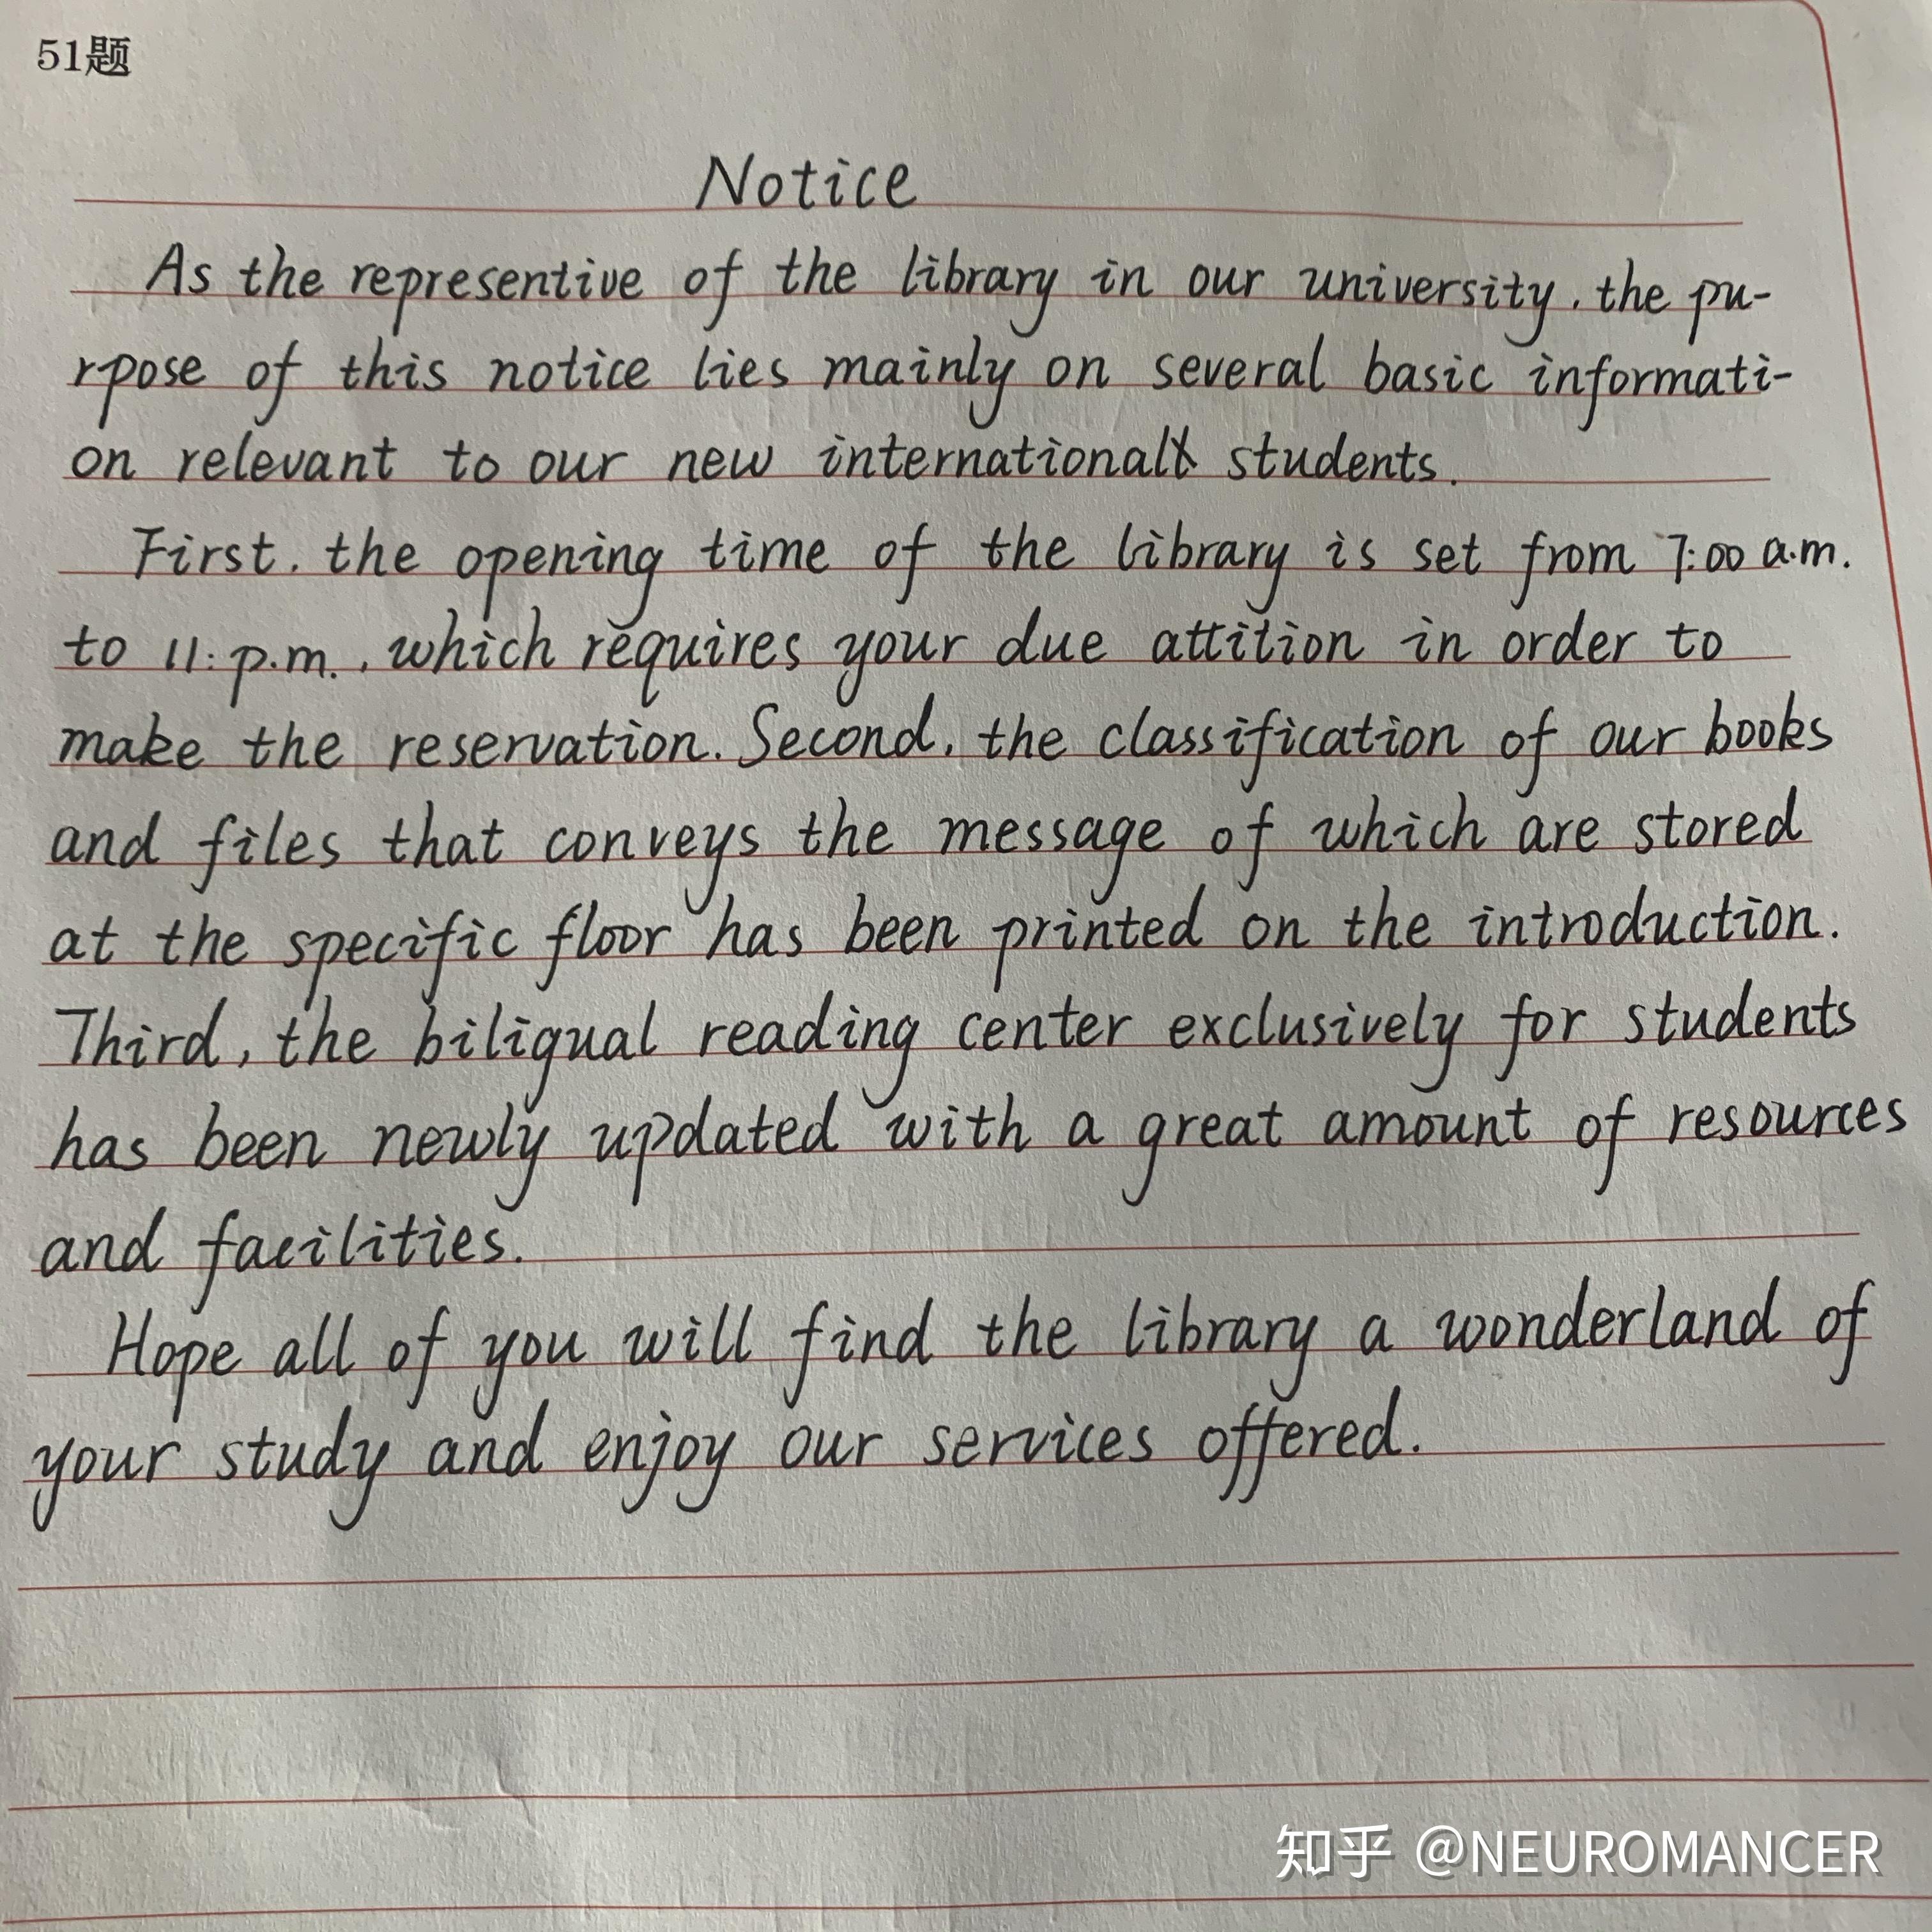 51题
Notice
As the representive of the library in our university, the pu-
rpose of this notice lies mainly on several basic informati-
on relevant to our new international students.
First, the opening time of the library is set from 7:00 a.m.
to 11: p.m., which requires your due attition in order to
make the reservation. Second, the classification of our books
and files that conveys the message of which are stored
at the specific floor has been printed on the introduction.
Third, the biligual reading center exclusively for students
has been newly updated with a great amount of resources
and facilities.
Hope all of you will find the library a wonderland of
your study and enjoy our services offered.
知乎 @NEUROMANCER